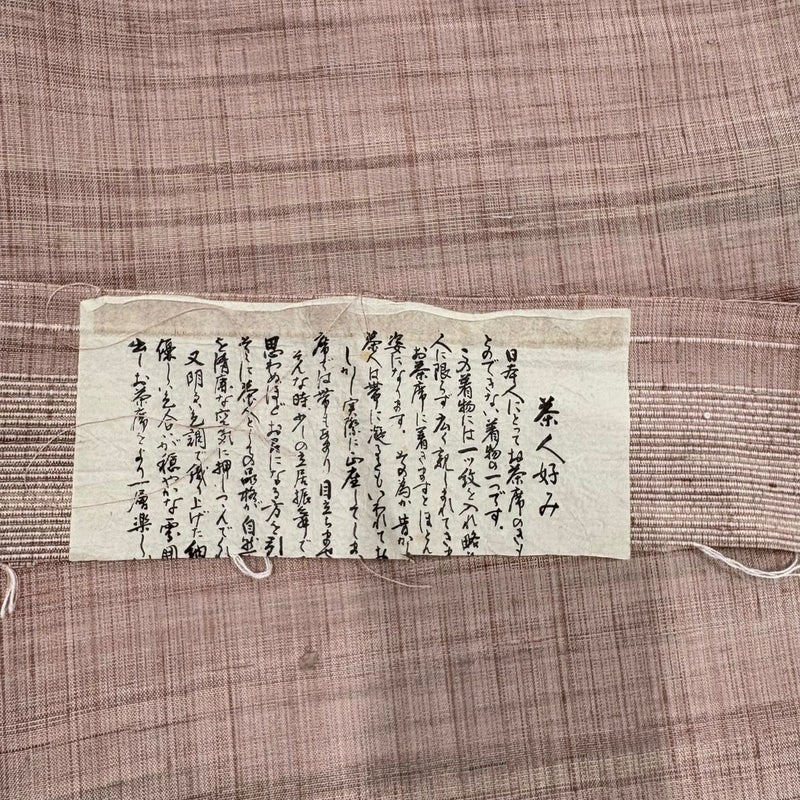 茶人好み
日本人にとってお茶席のきも
とのできない着物の一つです。
この着物には一ツ紋を入れ略
人に限らず広く親しまれてきま
お茶席に着きますとほとん
姿になります。その為か昔から
茶人は帯に凝るともいわれてお
しかし実際に正座してしま
席では帯もあまり目立ちませ
そんな時、少しの立居振舞で
思わぬほどお尻になる方を引
そこに茶人としての品格が自然
を清廉な空気に押しつつんでくれ
又明るい色調で織り上げた紬
優しい色合が穏やかな雰囲
出しお茶席をより一層楽し